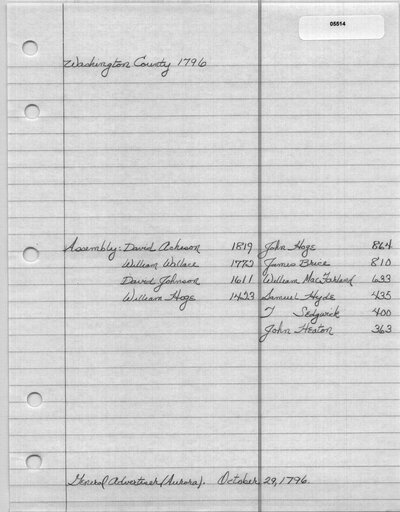 05514
Washington County 1796
Assembly: David Acheson 1819 John Hoge 864
William Wallace 1772 James Brice 810
David Johnson 1611 William MacFarland 633
William Hoge 1423 Samuel Hyde 435
T Sedgwick 400
John Heaton 363
General Advertiser (Aurora). October 29, 1796.